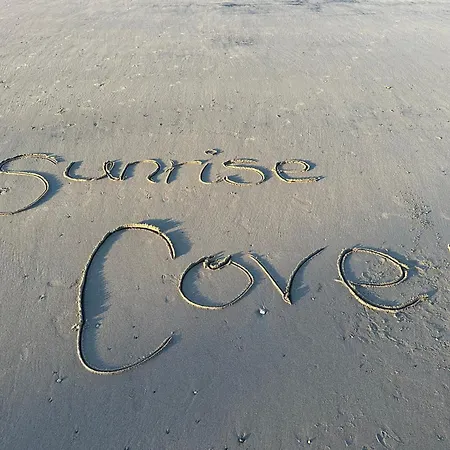 Sunrise
Cove